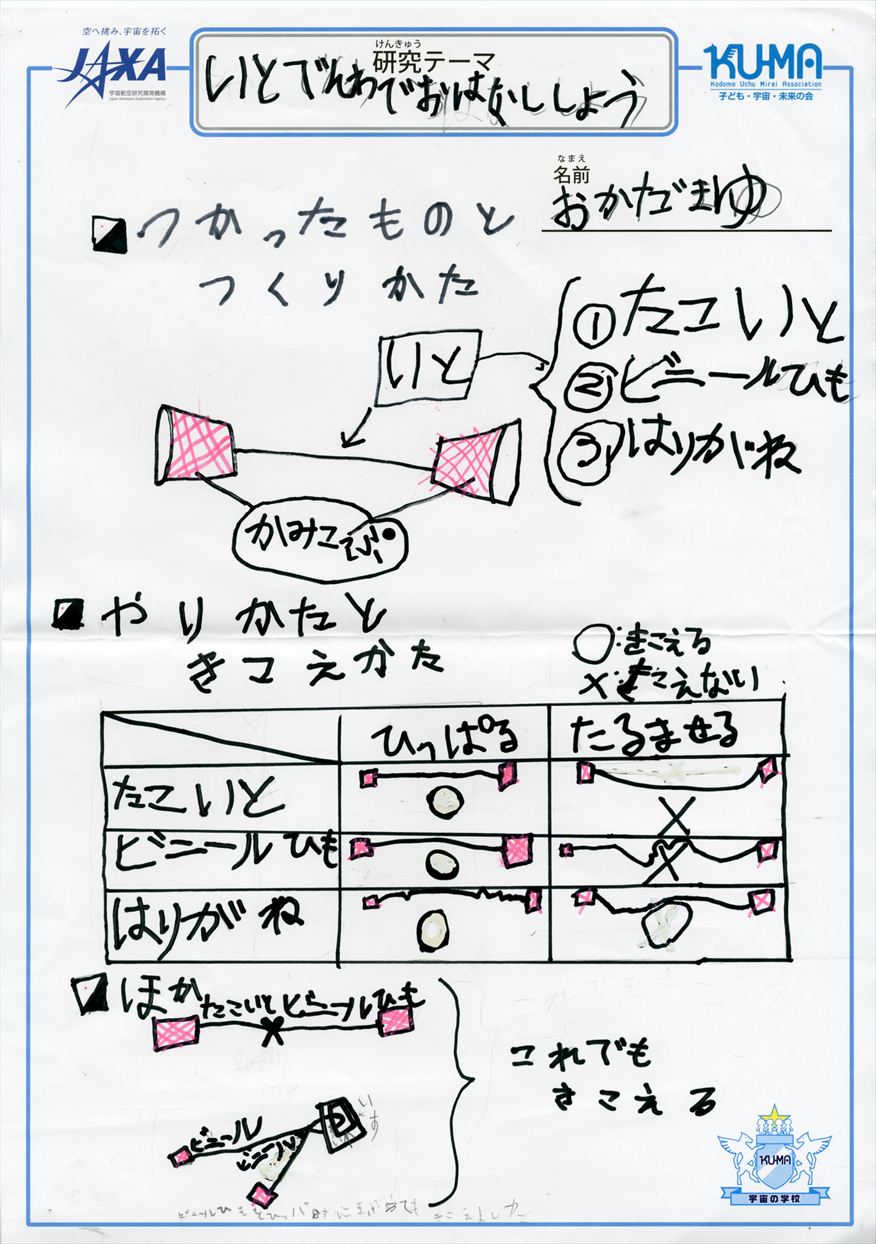 空へ挑み、宇宙を拓く
JAXA
宇宙航空研究開発機構
Japan Aerospace Exploration Agency
けんきゅう
研究テーマ
いとでんわでおはなししよう
KU-MA
Kodomo Uchu Mirai Association
子ども・宇宙・未来の会
なまえ
名前
おかだまゆ
つかったものと
つくりかた
いと
①たこいと
②ビニールひも
③はりがね
かみこっぷ
やりかたと
きこえかた
○:きこえる
×:きこえない
ひっぱる
たるませる
たこいと
○
×
ビニールひも
○
×
はりがね
○
○
ほか
たこいと
ビニールひも
これでも
きこえる
ビニール
ビニール
いす
KU-MA
宇宙の学校